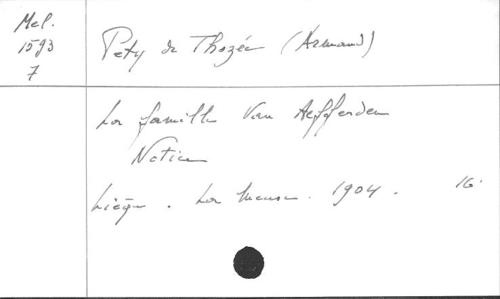 Mel.
1593
7
Pety de Thozée (Armand)
La famille Van Aefferden
Notice
Liège. La Meuse. 1904. 16°